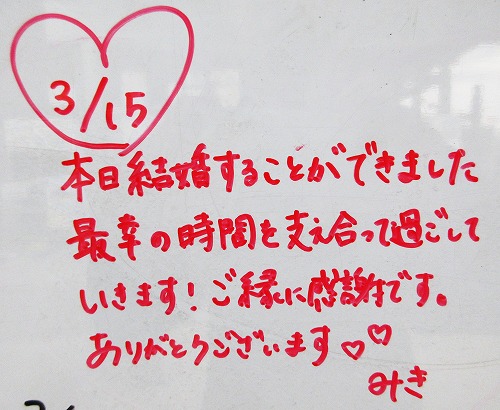 3/15
本日結婚することができました
最幸の時間を支え合って過ごして
いきます！ご縁に感謝です。
ありがとうございます♡♡
みき